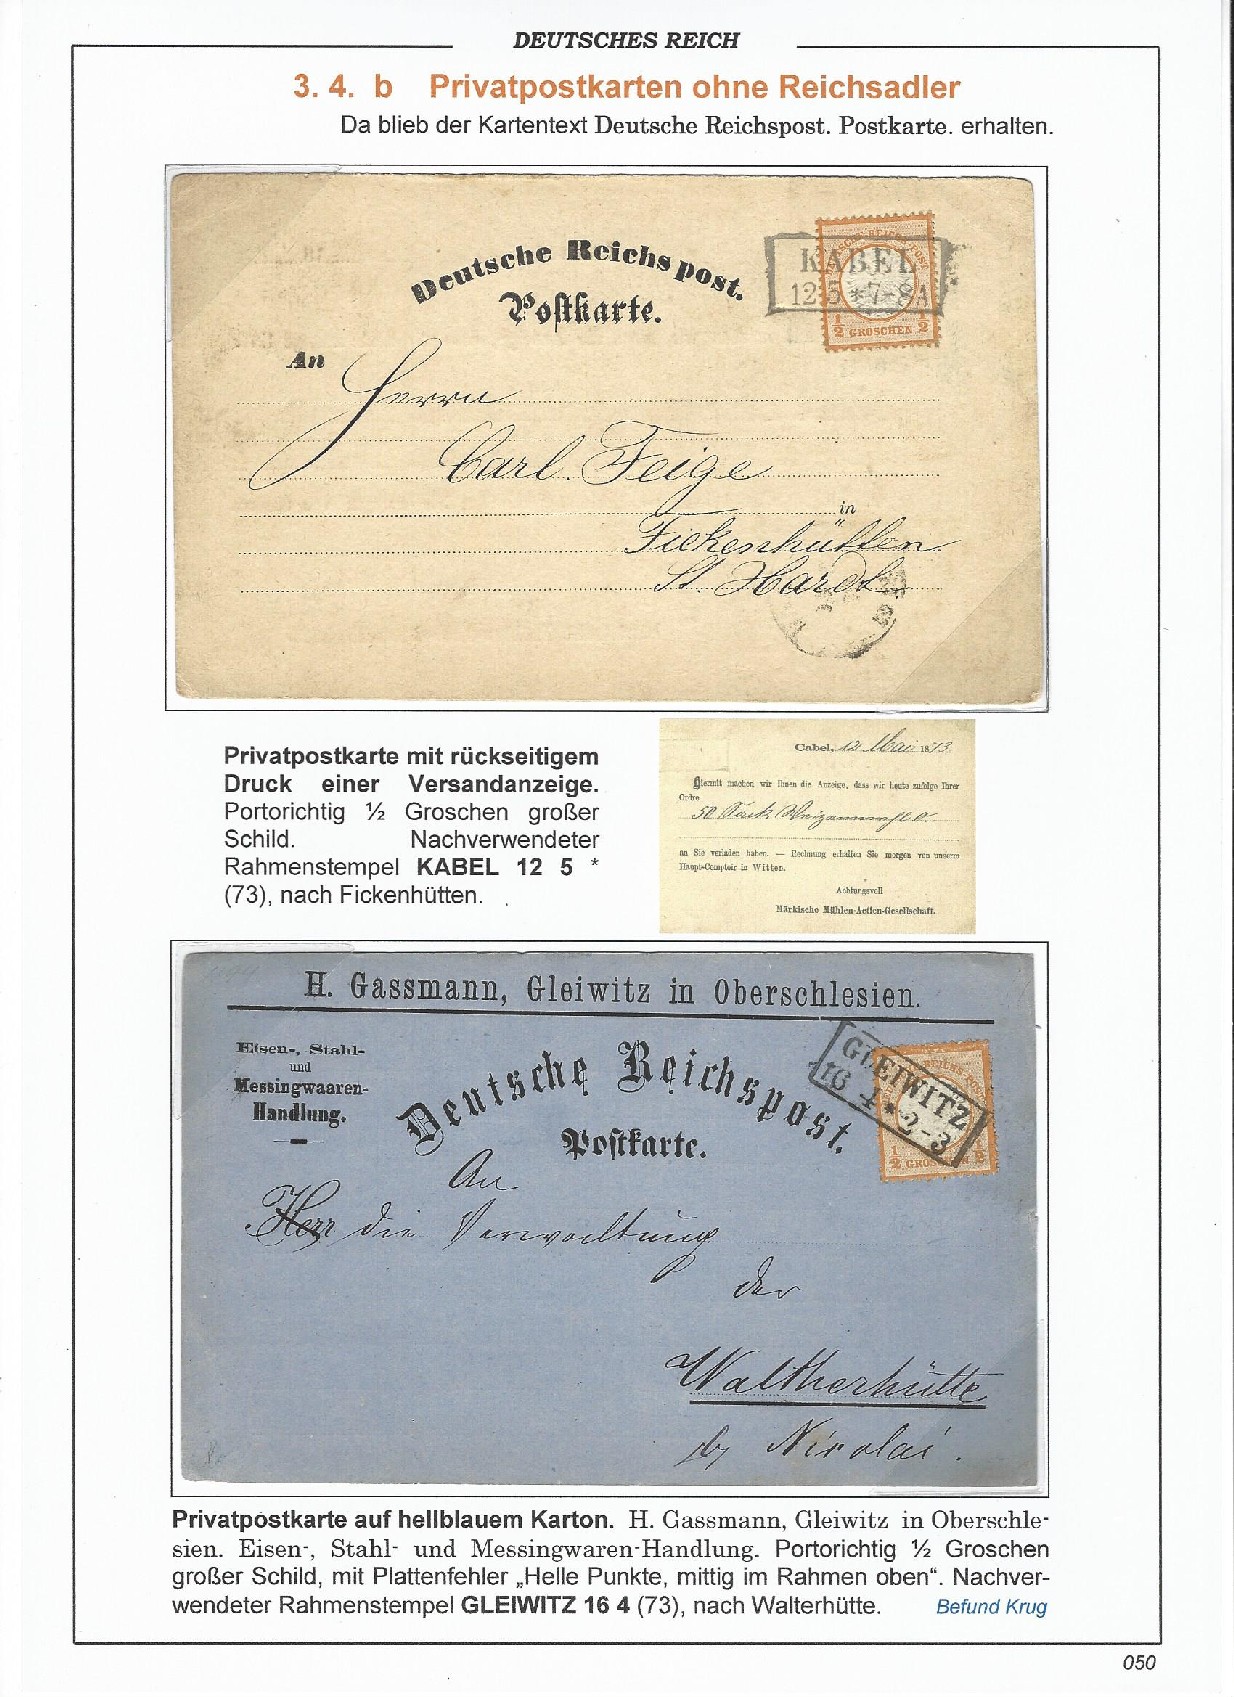 DEUTSCHES REICH
3. 4. b Privatpostkarten ohne Reichsadler
Da blieb der Kartentext Deutsche Reichspost. Postkarte. erhalten.
Deutsche Reichspost.
Postkarte.
KABEL
12 5 * 7-8A
½ GROSCHEN ½
An
Herrn
Carl Feige
in
Fickenhütten
St. Hardt
Privatpostkarte mit rückseitigem
Druck einer Versandanzeige.
Portorichtig ½ Groschen großer
Schild. Nachverwendeter
Rahmenstempel KABEL 12 5 *
(73), nach Fickenhütten.
Cabel, 12 Mai 1873
Hiermit machen wir Ihnen die Anzeige, dass wir heute zufolge Ihrer
Ordre
50
an Sie verladen haben. — Rechnung erhalten Sie morgen von unserem
Haupt-Comptoir in Witten.
Achtungsvoll
Märkische Mühlen-Actien-Gesellschaft.
H. Gassmann, Gleiwitz in Oberschlesien.
Eisen-, Stahl-
und
Messingwaaren-
Handlung.
Deutsche Reichspost.
Postkarte.
GLEIWITZ
16 4 * 2-3
½ GROSCHEN ½
An
Herr die Verwaltung
der
Waltherhütte
by Nicolai.
Privatpostkarte auf hellblauem Karton. H. Gassmann, Gleiwitz in Oberschle-
sien. Eisen-, Stahl- und Messingwaren-Handlung. Portorichtig ½ Groschen
großer Schild, mit Plattenfehler „Helle Punkte, mittig im Rahmen oben“. Nachver-
wendeter Rahmenstempel GLEIWITZ 16 4 (73), nach Walterhütte. Befund Krug
050